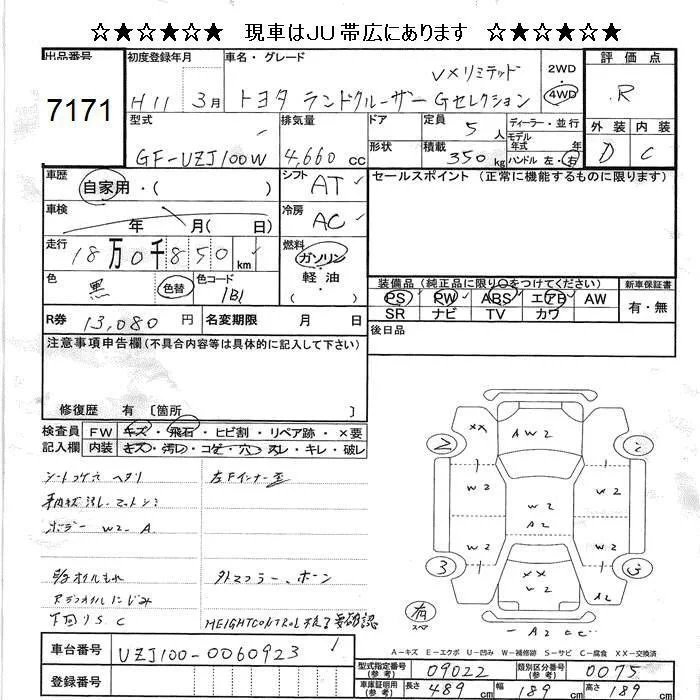 ☆★☆★☆★☆ 現車はJU帯広にあります ☆★☆★☆★☆
出品番号 7171
初度登録年月 H11 3月
車名・グレード トヨタ ランドクルーザー VXリミテッド Gセレクション
2WD 4WD
評価点 R
外装 D 内装 C
型式 GF-UZJ100W
排気量 4,660 cc
ドア 定員 5人
ディーラー・並行
モデル年式 年
形状 積載 350kg ハンドル 左・右
車歴 自家用・( )
シフト AT
セールスポイント (正常に機能するものに限ります)
車検 年 月( 日)
冷房 AC
走行 18万0千850km
燃料 ガソリン・軽油
色 黒 色替 色コード 1B1
装備品 (純正品に限り○をつけてください) 新車保証書
PS PW ABS エアB AW 有・無
SR ナビ TV カワ
R券 13,080円 名変期限 月 日
後日品
注意事項申告欄(不具合内容等は具体的に記入して下さい)
修復歴 有 〔箇所 〕
検査員記入欄 FW キズ・飛石・ヒビ割・リペア跡・×要
内装 キズ・汚レ・コゲ・穴・スレ・キレ・破レ
左Fインナー歪
ボデー W2.A
外マフラー、ホーン
下回りS.C
HEIGHTCONTROL 要確認
XX AW2
2 2
W2 W2 W2
A2
W2 XX W2 W2
3 3
有 スペ
A2 CC
A-キズ E-エクボ U-凹み W-補修跡 S-サビ C-腐食 XX-交換済
車台番号 UZJ100-0060923
登録番号
型式指定番号(参考) 09022 類別区分番号(参考) 0075
車庫証明用(参考) 長さ 489cm 幅 189cm 高さ 189cm